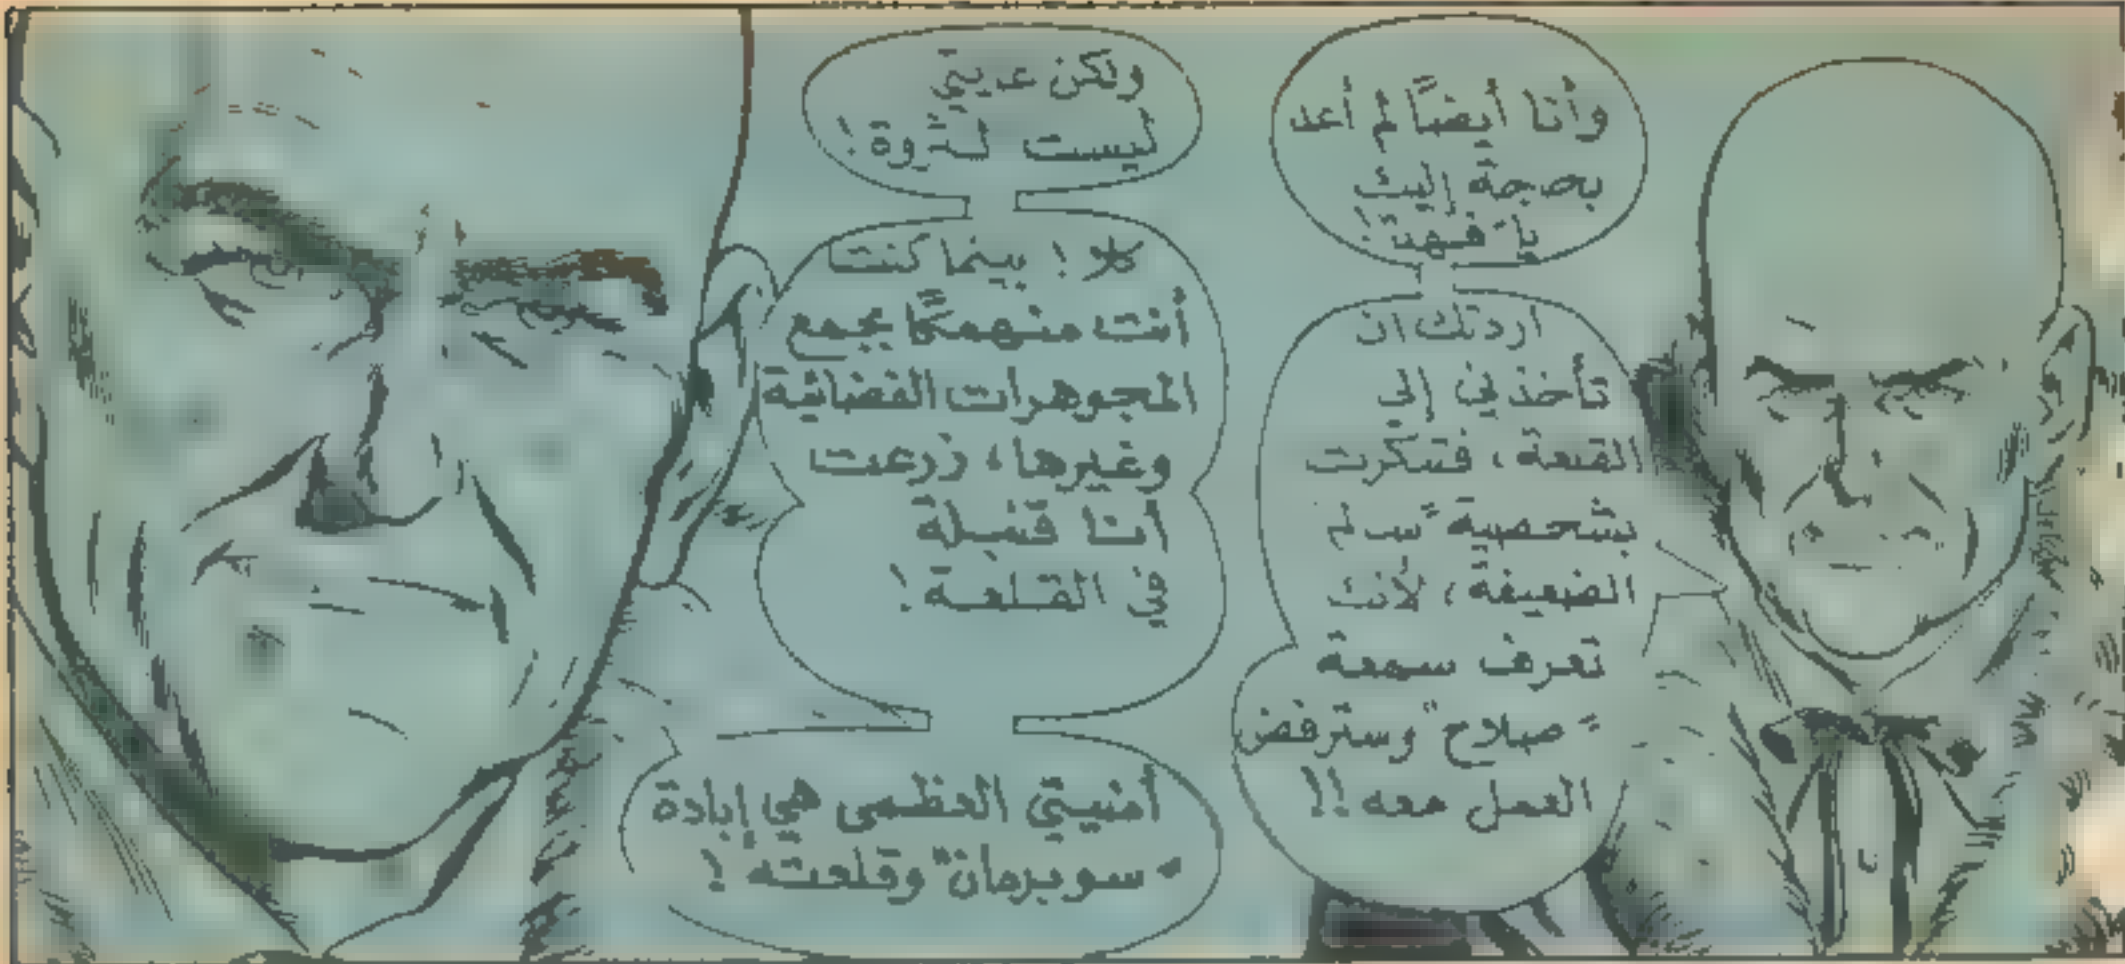 وأنا أيضاً لم أعد
بحاجة إليك
يا فهيد!
اردتك ان
تأخذني إلى
القلعة، فتنكرت
بشخصية "سالم"
الضعيفة، لأنك
تعرف سمعة
"صلاح" وسترفض
العمل معه!!
ولكن غايتي
ليست الثروة!
كلا! بينما كنت
أنت منهمكاً بجمع
المجوهرات الفضائية
وغيرها، زرعت
أنا قنبلة
في القلعة!
أمنيتي العظمى هي إبادة
"سوبرمان" وقلعته!